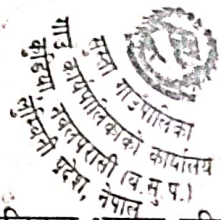 सुस्ता गाउँपालिका
गाउँ कार्यपालिकाको कार्यालय
नवलपरासी (ब.सु.प.)
कुडिया लुम्बिनी प्रदेश, नेपाल